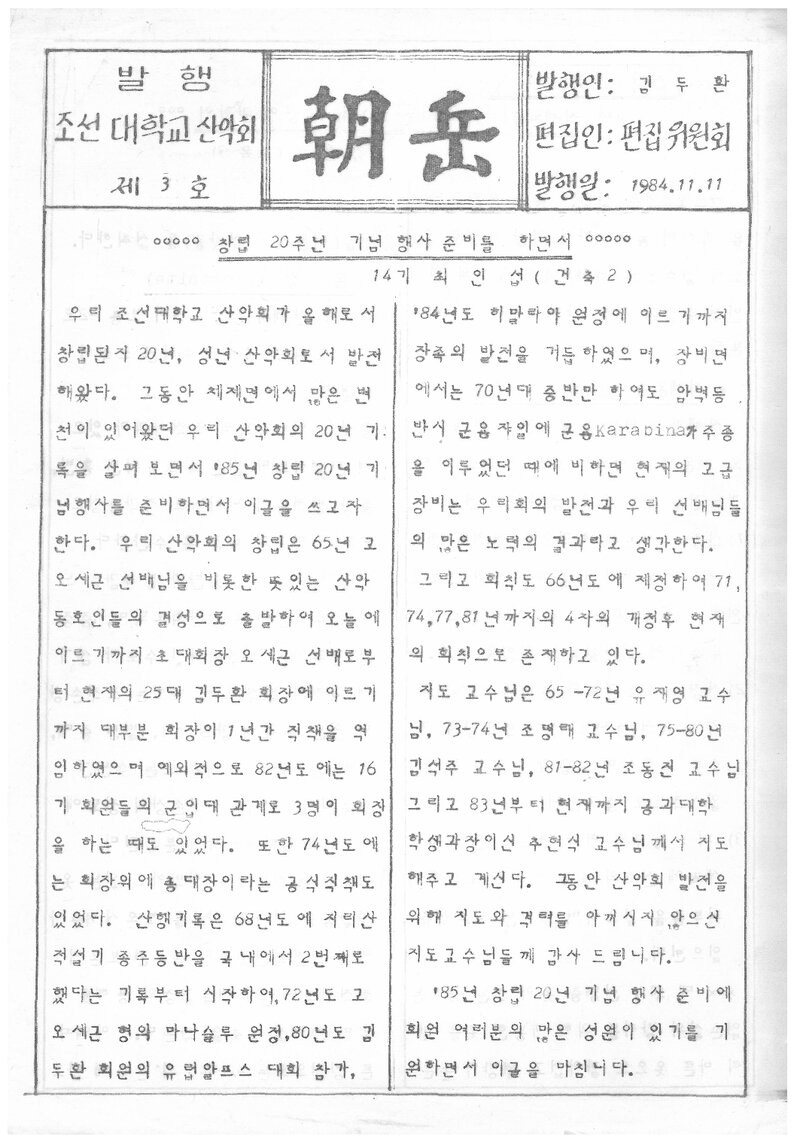 발 행
조선 대학교 산악회
제 3 호
朝岳
발행인: 김 두 환
편집인: 편집 위원회
발행일: 1984.11.11
ooooo 창립 20주년 기념 행사 준비를 하면서 ooooo
14기 최 인 섭 (건축2)
우리 조선대학교 산악회가 올해로서
창립된지 20년, 성년 산악회로서 발전
해왔다. 그동안 체제면에서 많은 변
천이 있어왔던 우리 산악회의 20년 기
록을 살펴 보면서 '85년 창립 20년 기
념행사를 준비하면서 이글을 쓰고자
한다. 우리 산악회의 창립은 65년 고
오세근 선배님을 비롯한 뜻있는 산악
동호인들의 결성으로 출발하여 오늘에
이르기까지 초대회장 오세근 선배로부
터 현재의 25대 김두환 회장에 이르기
까지 대부분 회장이 1년간 직책을 역
임하였으며 예외적으로 82년도에는 16
기 회원들의 군입대 관계로 3명이 회장
을 하는 때도 있었다. 또한 74년도에
는 회장위에 총대장이라는 공식직책도
있었다. 산행기록은 68년도에 지리산
적설기 종주등반을 국내에서 2번째로
했다는 기록부터 시작하여,72년도 고
오세근 형의 마나슬루 원정,80년도 김
두환 회원의 유럽알프스 대회 참가,
'84년도 히말라야 원정에 이르기까지
장족의 발전을 거듭하였으며, 장비면
에서는 70년대 중반만 하여도 암벽등
반시 군용자일에 군용Karabina가주종
을 이루었던 때에 비하면 현재의 고급
장비는 우리회의 발전과 우리 선배님들
의 많은 노력의 결과라고 생각한다.
그리고 회칙도 66년도에 제정하여 71,
74,77,81년까지의 4차의 개정후 현재
의 회칙으로 존재하고 있다.
지도 교수님은 65 -72년 유재영 교수
님, 73-74년 조명태 교수님, 75-80년
김석주 교수님, 81-82년 조동진 교수님
그리고 83년부터 현재까지 공과대학
학생과장이신 추현식 교수님께서 지도
해주고 계신다. 그동안 산악회 발전을
위해 지도와 격려를 아끼시지 않으신
지도교수님들께 감사 드립니다.
'85년 창립 20년 기념 행사 준비에
회원 여러분의 많은 성원이 있기를 기
원하면서 이글을 마칩니다.